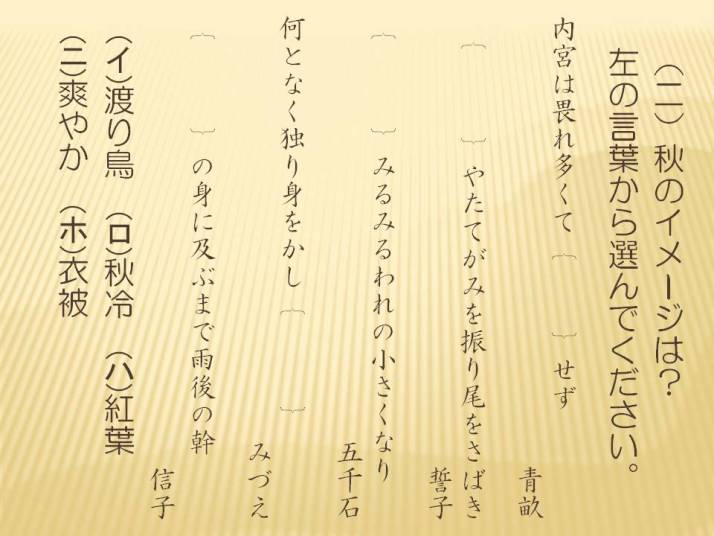 （二）秋のイメージは？
左の言葉から選んでください。
内宮は畏れ多くて｛　　｝せず
青畝
｛　　｝やたてがみを振り尾をさばき
誓子
｛　　｝みるみるわれの小さくなり
五千石
何となく独り身をかし｛　　｝
みづえ
｛　　｝の身に及ぶまで雨後の幹
信子
（イ）渡り鳥　（ロ）秋冷　（ハ）紅葉
（ニ）爽やか　（ホ）衣被